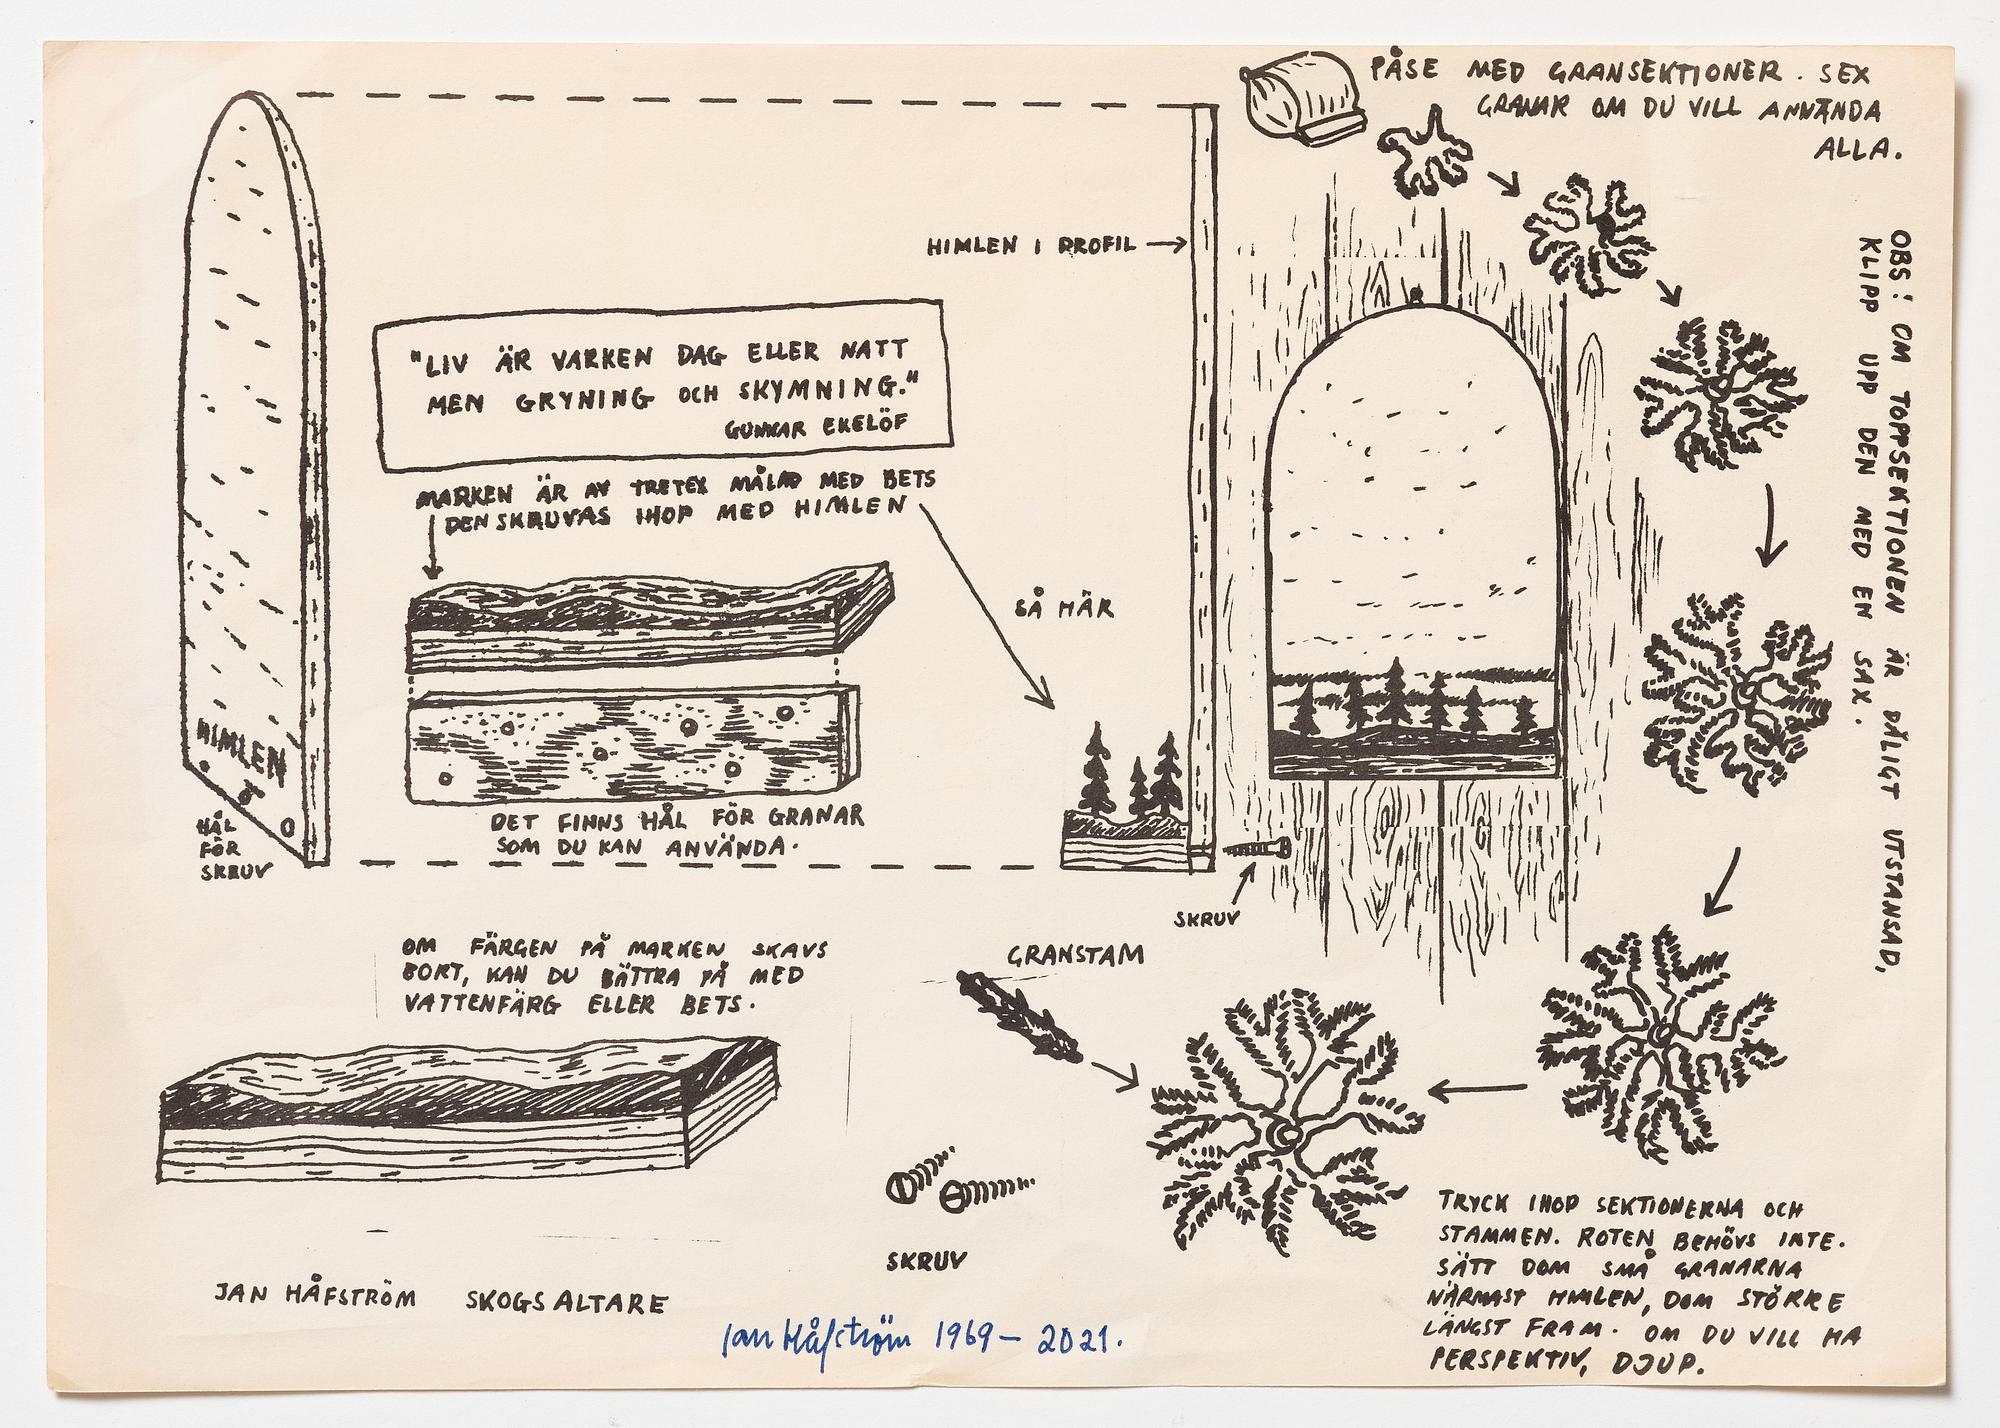 PÅSE MED GRANSEKTIONER. SEX
GRANAR OM DU VILL ANVÄNDA
ALLA.
HIMLEN I PROFIL
OBS: OM TOPPSEKTIONEN ÄR DÅLIGT UTSTANSAD,
KLIPP UPP DEN MED EN SAX.
"LIV ÄR VARKEN DAG ELLER NATT
MEN GRYNING OCH SKYMNING."
GUNNAR EKELÖF
MARKEN ÄR AV TRETEX MÅLAD MED BETS
DEN SKRUVAS IHOP MED HIMLEN
SÅ HÄR
HIMLEN
HÅL
FÖR
SKRUV
DET FINNS HÅL FÖR GRANAR
SOM DU KAN ANVÄNDA.
SKRUV
OM FÄRGEN PÅ MARKEN SKAVS
BORT, KAN DU BÄTTRA PÅ MED
VATTENFÄRG ELLER BETS.
GRANSTAM
SKRUV
TRYCK IHOP SEKTIONERNA OCH
STAMMEN. ROTEN BEHÖVS INTE.
SÄTT DOM SMÅ GRANARNA
NÄRMAST HIMLEN, DOM STÖRRE
LÄNGST FRAM. OM DU VILL HA
PERSPEKTIV, DJUP.
JAN HÅFSTRÖM SKOGSALTARE
Jan Håfström 1969–2021.